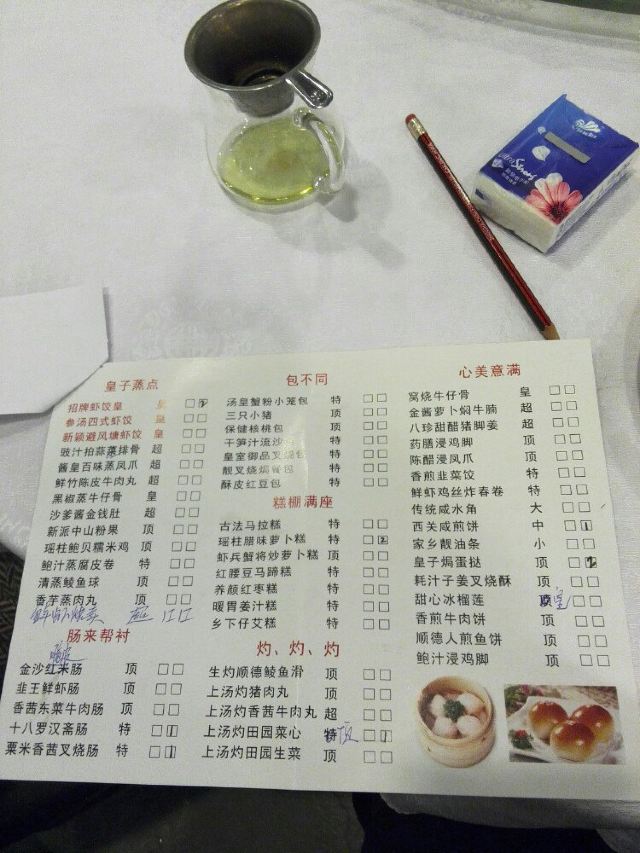 皇子蒸点
招牌虾饺皇 皇
参汤四式虾饺 皇
新颖避风塘虾饺 皇
豉汁拍蒜蒸排骨 超
酱皇百味蒸凤爪 超
鲜竹陈皮牛肉丸 超
黑椒蒸牛仔骨 皇
沙爹酱金钱肚 超
新派中山粉果 顶
瑶柱鲍贝糯米鸡 顶
鲍汁蒸腐皮卷 特
清蒸鲮鱼球 顶
香芋蒸肉丸 顶
肠来帮衬
金沙红米肠 顶
韭王鲜虾肠 顶
香茜东菜牛肉肠 顶
十八罗汉斋肠 特 1
粟米香茜叉烧肠 特 1
包不同
汤皇蟹粉小笼包 特
三只小猪 顶
保健核桃包 顶
干笋汁流沙包 特
皇室御品叉烧包 特
靓叉烧焗餐包 特
酥皮红豆包 特
糕棚满座
古法马拉糕 特
瑶柱腊味萝卜糕 特 2
虾兵蟹将炒萝卜糕 顶
红腰豆马蹄糕 特
养颜红枣糕 特
暖胃姜汁糕 特
乡下仔艾糕 特
灼、灼、灼
生灼顺德鲮鱼滑 顶
上汤灼猪肉丸 顶
上汤灼香茜牛肉丸 超
上汤灼田园菜心 特 顶 1
上汤灼田园生菜 顶
心美意满
窝烧牛仔骨 皇
金酱萝卜焖牛腩 超
八珍甜醋猪脚姜 超
药膳浸鸡脚 顶
陈醋浸凤爪 顶
香煎韭菜饺 特
鲜虾鸡丝炸春卷 特
传统咸水角 大
西关咸煎饼 中 1
家乡靓油条 小
皇子焗蛋挞 顶
耗汁子姜叉烧酥 顶
甜心冰榴莲 皇
香煎牛肉饼 顶
顺德人煎鱼饼 顶
鲍汁浸鸡脚 顶